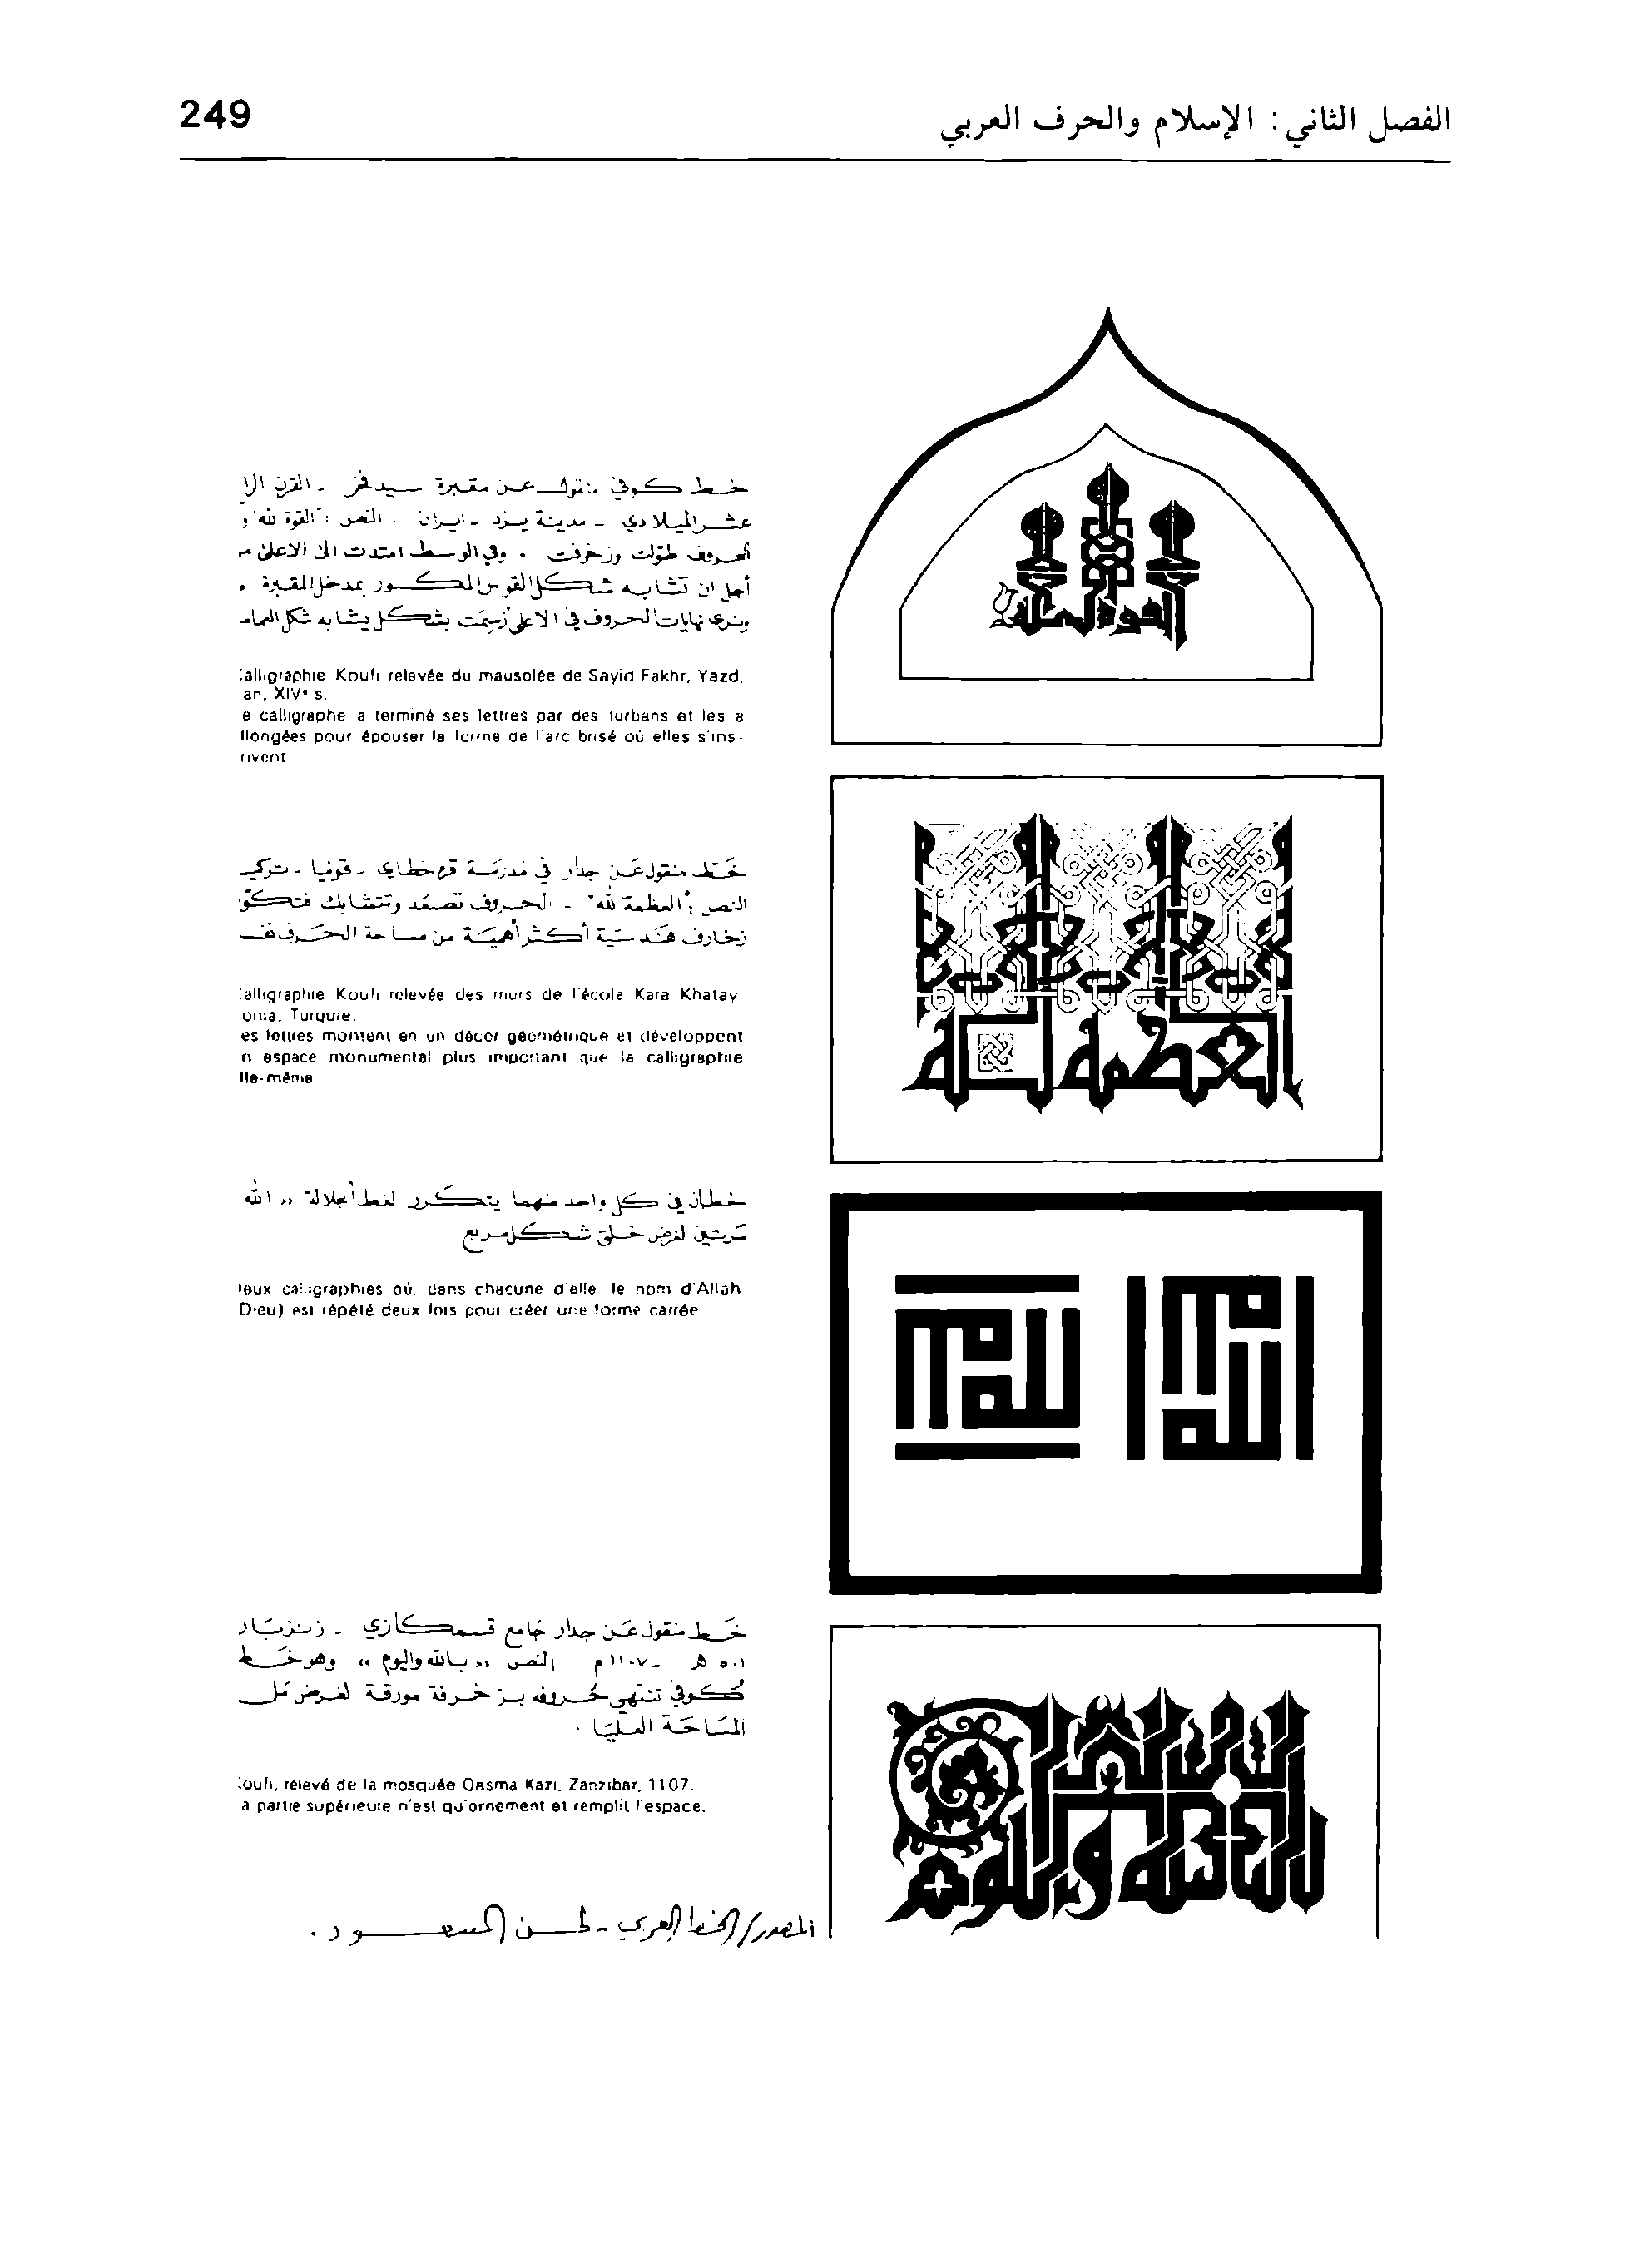 الفصل الثاني : الإسلام والحرف العربي
249
خط كوفي منقول عن مقبرة سيد فخر - القرن الرا
عشر الميلادي - مدينة يزد - ايران . النص : "القوة لله" و
الحروف طوّلت وزخرفت . وفي الوسط امتدت الى الاعلى م
أجل ان تتشابه شكل القوس المكسور بمدخل المقبرة .
ونرى نهايات الحروف في الاعلى رُسمت بشكل يشابه شكل العما
alligraphie Koufi relevée du mausolée de Sayid Fakhr, Yazd,
an, XIVe s.
e calligraphe a terminé ses lettres par des turbans et les a
llongées pour épouser la forme de l'arc brisé où elles s'ins-
rivent
القوة لله
خط منقول عن جدار في مدرسة قره خطاي - قونيا - تركيـ
النص : "العظمة لله" - الحروف تصعد وتتشابك فتكوّ
زخارف هندسية أكثر أهمية من مساحة الحرف نفـ
alligraphie Koufi relevée des murs de l'école Kara Khatay,
onia, Turquie.
es lettres montent en un décor géométrique et développent
n espace monumental plus important que la calligraphie
lle-même
العظمة لله
خطان في كل واحد منهما يتكرر لفظ الجلالة « الله
مرتين لغرض خلق شكل مربع
leux calligraphies où, dans chacune d'elle le nom d'Allah
Dieu) est répété deux fois pour créer une forme carrée
الله الله
الله الله
خط منقول عن جدار جامع قسمكازي - زنزبار
٥٠١ هـ - ١١٠٧ م النص « بالله واليوم » وهو خط
كوفي تنتهي حروفه بزخرفة مورقة لغرض مل
المساحة العليا .
oufi, relevé de la mosquée Qasma Kazi, Zanzibar, 1107.
a partie supérieure n'est qu'ornement et remplit l'espace.
بالله واليوم
المصدر / الخط العربي - حسن المسعود .